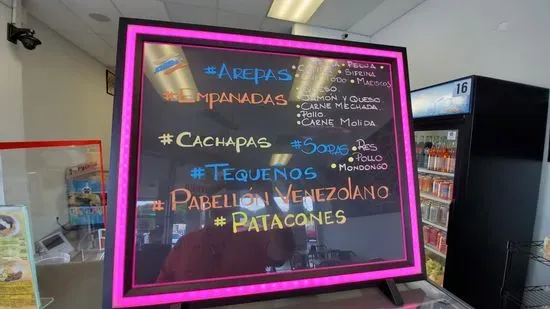 #AREPAS
PELUA
SIFRINA
MARISCOS
QUESO
#EMPANADAS
JAMÓN Y QUESO
CARNE MECHADA
POLLO
CARNE MOLIDA
#CACHAPAS
#SOPAS
RES
POLLO
MONDONGO
#TEQUEÑOS
#PABELLÓN VENEZOLANO
#PATACONES
16